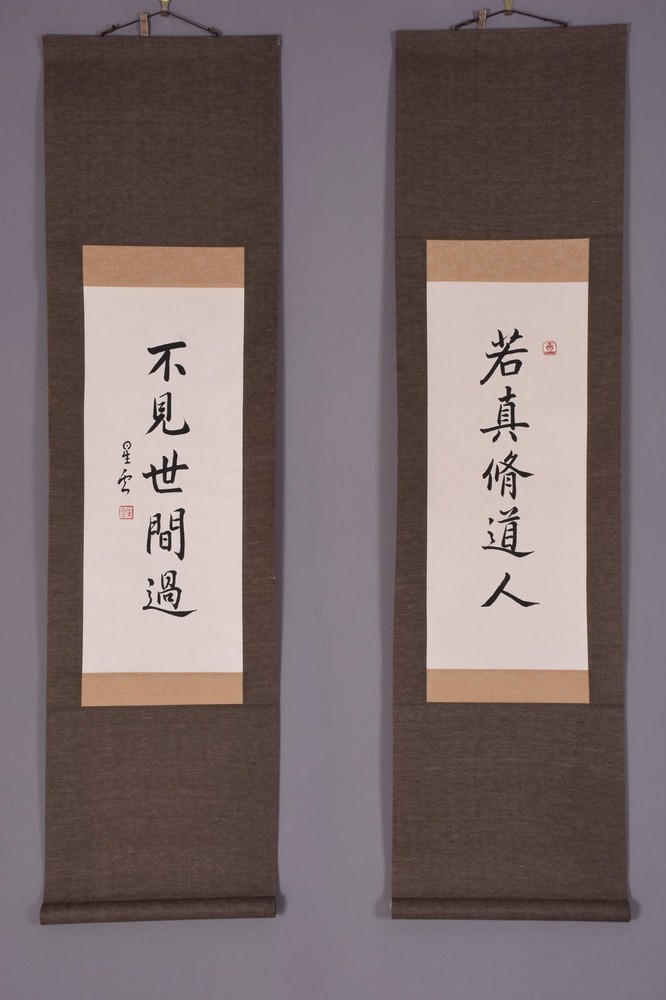 若真脩道人
不見世間過
星雲